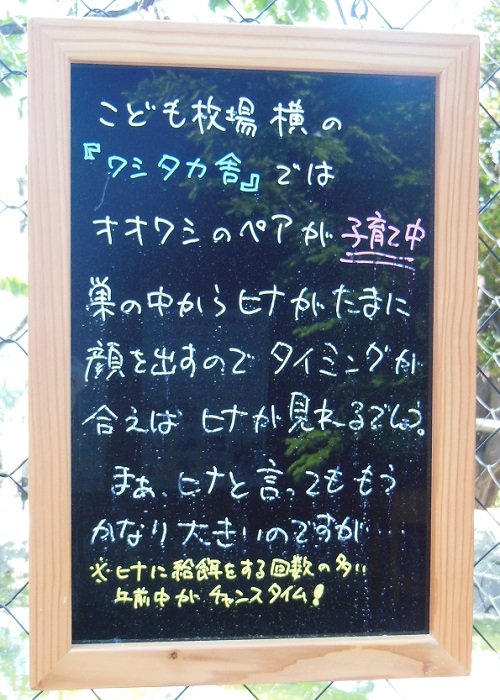 こども牧場 横の
『ワシタカ舎』では
オオワシのペアが 子育て中
巣の中からヒナがたまに
顔を出すので タイミングが
合えば ヒナが見れるでしょう。
まぁ、ヒナと言っても もう
かなり大きいのですが…
※ヒナに給餌をする回数の多い
午前中が チャンスタイム!